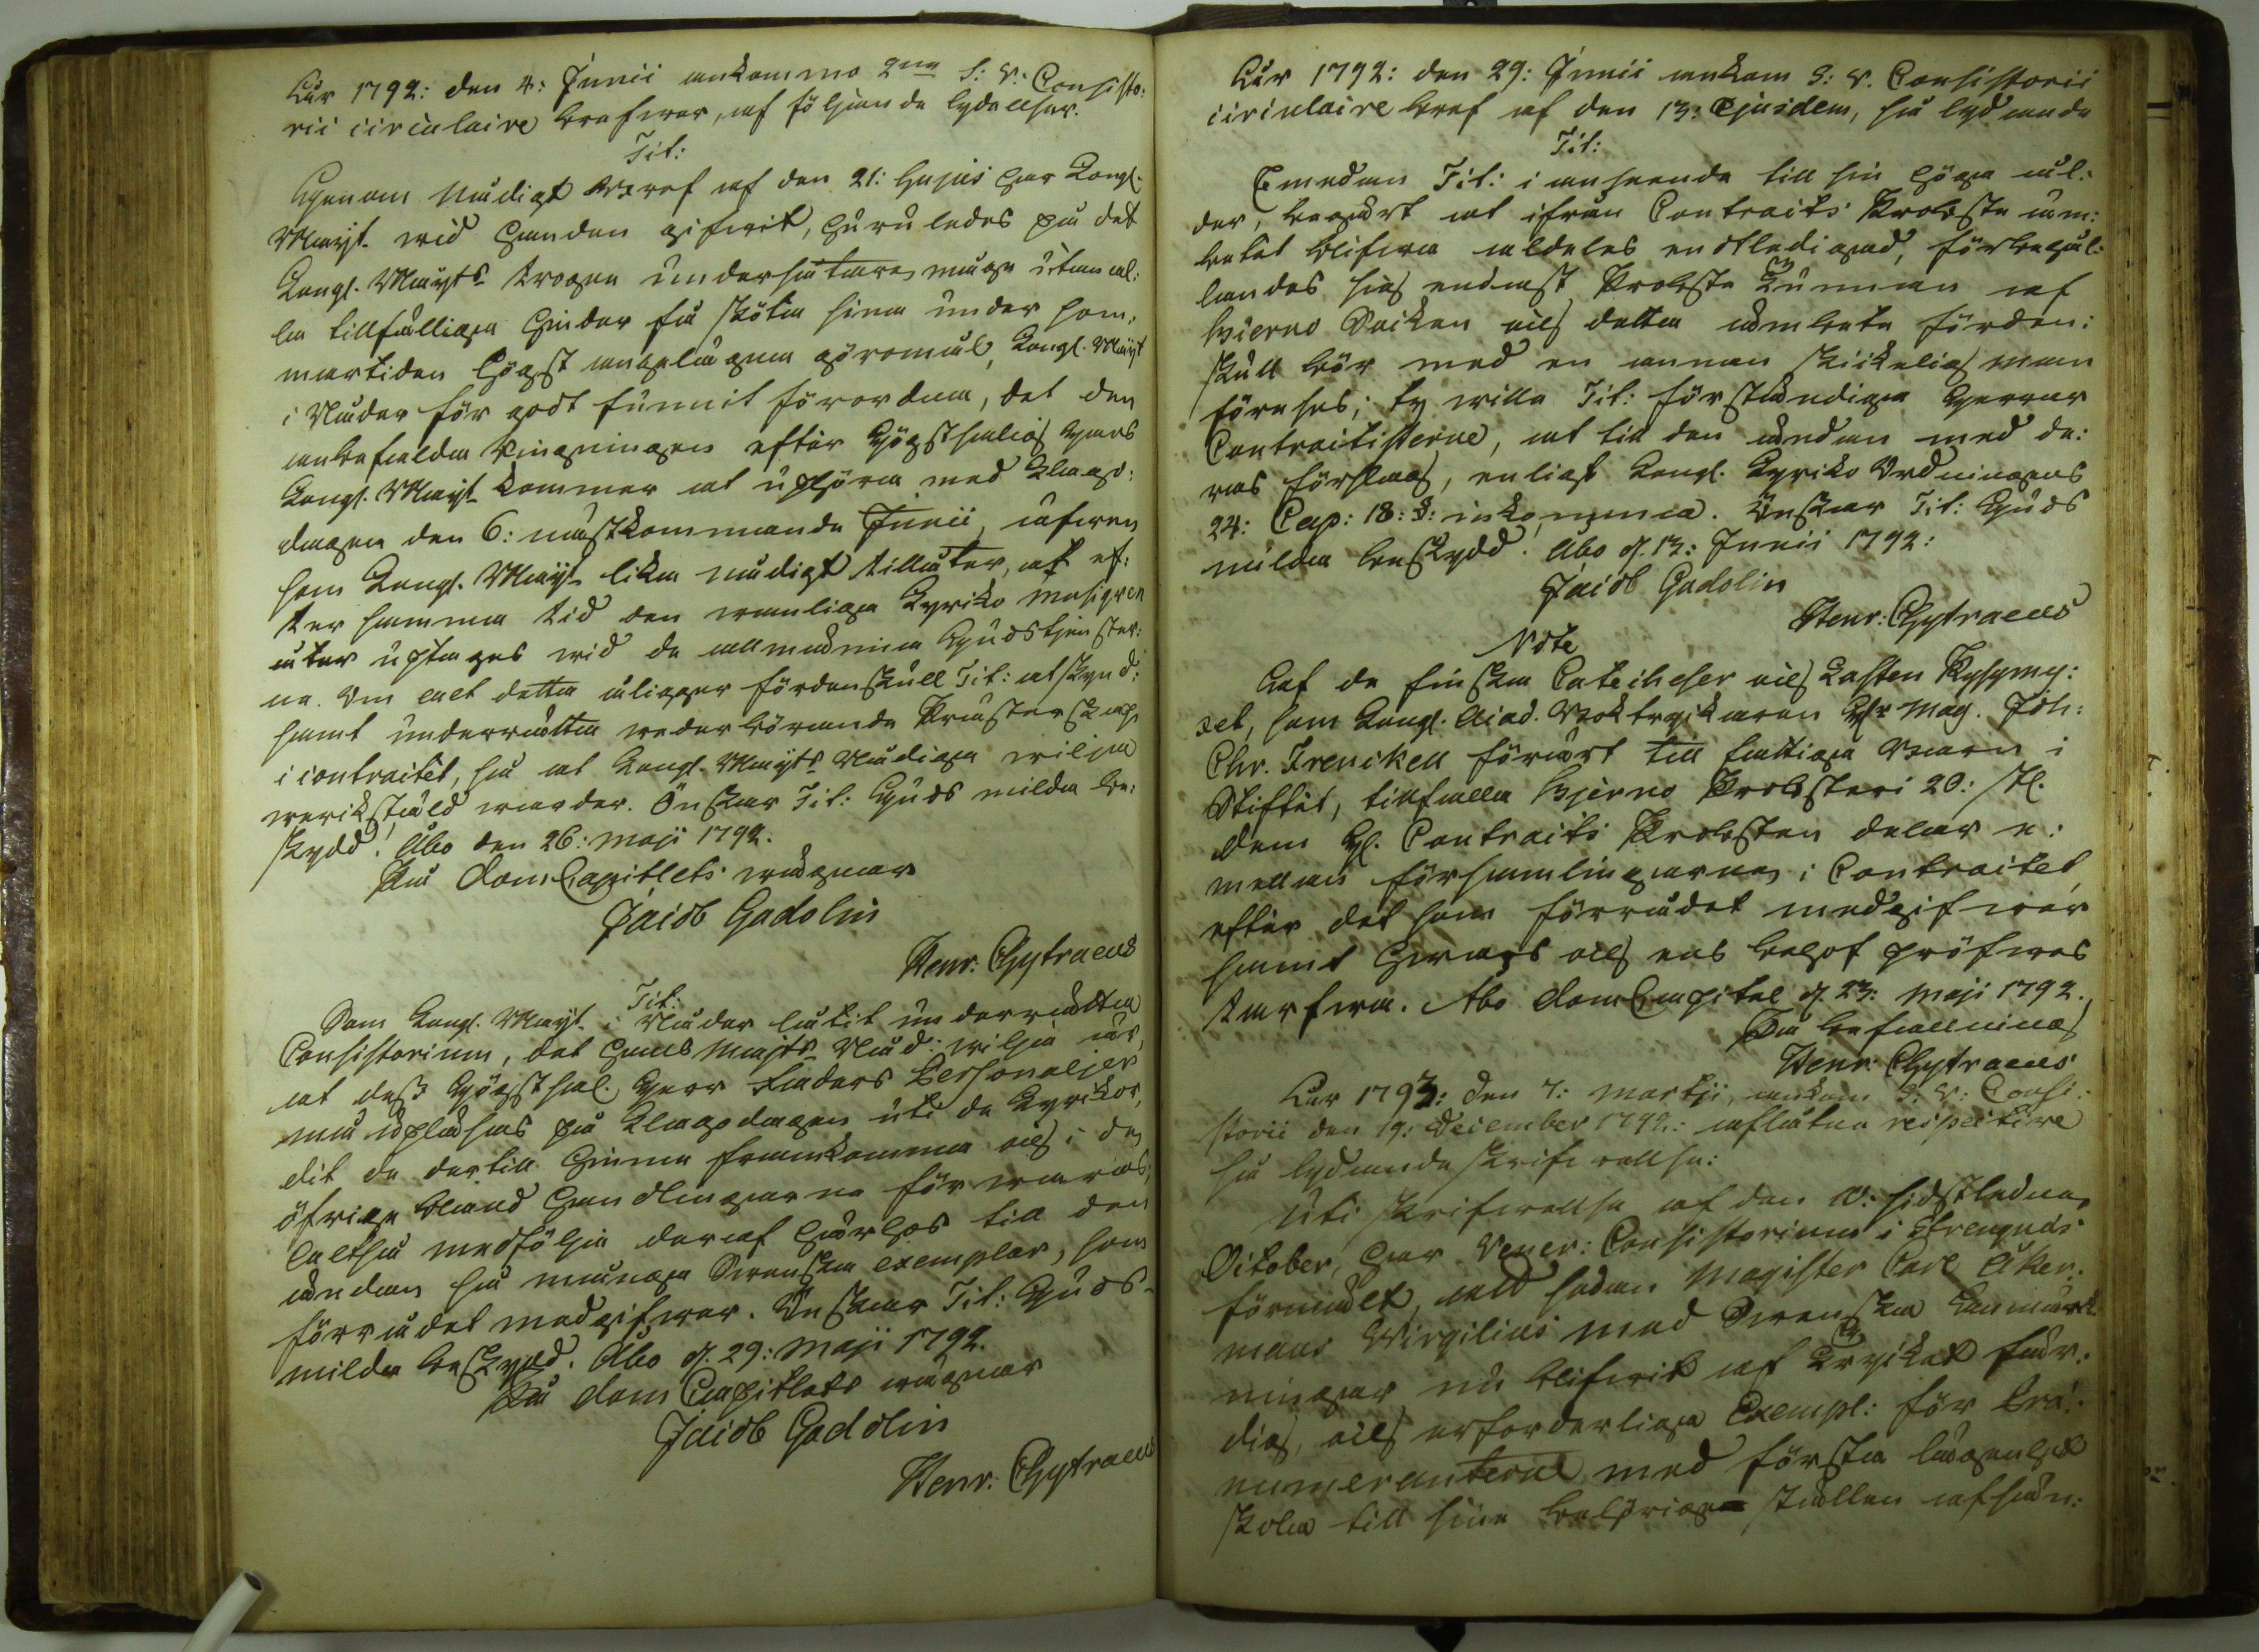 Åhr 1792: den 4: Junii ankommo 2ne S: V: Consisto:
rii circulaire brefwer, af följande lydellser.
Tit:
Genom Nådigt Bref af den 21: hujus har Kongl.
Mayt. wid handen gifwit, huruledes på det
Kongl. Mayts trogne undersåtare, måge utan al:
la tillfälliga hinder få sköta sina under som:
martiden högst angelägna göromål, Kongl. Mayt
i Nåder för godt funnit förordna, det den
anbefallda Ringningen efter Högstsalig Hans
Kongl. Mayt kommer at uphöra med Klago:
dagen den 6: nästkommande Junii, äfwen
som Kongl. Mayt lika nådigt tillåter, at ef:
ter samma tid den wanliga Kyrko musiquen
åter uptages wid de allmänna Gudstjenster:
na. Om alt detta åligger fördenskull Tit: at skynd:
samt underrätta wederbörande Prästerskap
i contractet, så at Kongl. Mayts Nådiga wilja
werkstäld warder. Önskar Tit: Guds milda be:
skydd! Åbo den 26: Maji 1792.
På DomCapitlets wägnar
Jacob Gadolin
Henr: Chytraeus
Tit:
Som Kongl. Mayt. i Nåder låtit underrätta
Consistorium, det Hans Majts Nåd: wilja är,
at dess Högstsal. Herr Faders Personalier
må upläsas på Klagodagen uti de Kyrkor,
dit de dertill hinna framkomma och i de
öfriga bland Handlingarne förwaras;
altså medfölja deraf härhos till den
ändan så många Swenska exemplar, som
förrådet medgifwer. Önskar Tit: Guds
milda beskydd. Åbo d. 29: Maji 1792.
På Dom Capitlets wägnar
Jacob Gadolin
Henr: Chytraeus
Åhr 1792: den 29: Junii ankom S: V. Consistorii
circulaire bref af den 13: Ejusdem, så lydande
Tit:
Emedan Tit: i anseende till sin höga ål:
der, begärt at ifrån Contracts Probste äm:
betet blifwa aldeles entledigad, förbehål:
landes sig endast Probste Kunnan af
Bjerno Socken och detta ämbete förden:
skull bör med en annan skickelig man
förses; ty wille Tit: förständiga Herrar
Contractisterne, at till den ändan med de:
ras förslag, enligt Kongl. Kyrko Ordningens
24: Cap: 18: §: inkomma. Önskar Tit: Guds
milda beskydd! Åbo d. 13: Junii 1792:
Jacob Gadolin
Henr: Chytraeus
Note
Af de finska Catecheser och Lasten Kysymy:
xet, som Kongl. Acad. Boktryckaren Hr Mag. Joh:
Chr. Frenckell förärt till fattiga Barn i
Stiftet, tillfalla Bjerno Probsteri 20: st.
dem H. Contracts Probsten delar e:
mellan församlingarnes i Contractet,
efter det som förrådet medgifwer
samt hwars och ens behof pröfwas
tarfwa. Åbo DomCapitel d. 23: Maji 1792.
På befallning
Henr: Chytraeus
Åhr 1793: den 7: Martji, ankom S: V: Consi:
storii den 19: December 1792: aflåtne respective
så lydande skrifwellse:
Uti skrifwellse af den 10: sidstledne
October, har Vener: Consistorium i Strengnäs
förmält, att sedan Magister Carl Åker:
mans Virgilius med Swenska Anmärk
ningar nu blifwit af trycket fär:
dig, och erforderliga Exempl: för Præ:
numeranterne med första lägenhet
skola till sine behörige ställen afsän: